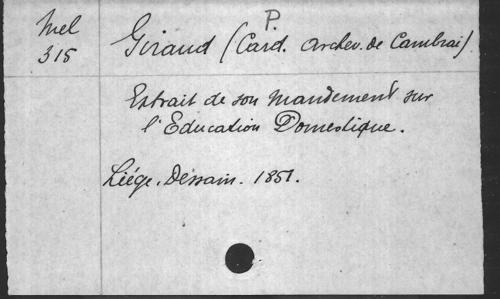 Mel
315
P.
Giraud (Card. Archev. de Cambrai).
Extrait de son Mandement sur
l'Education Domestique.
Liége. Dessain. 1851.